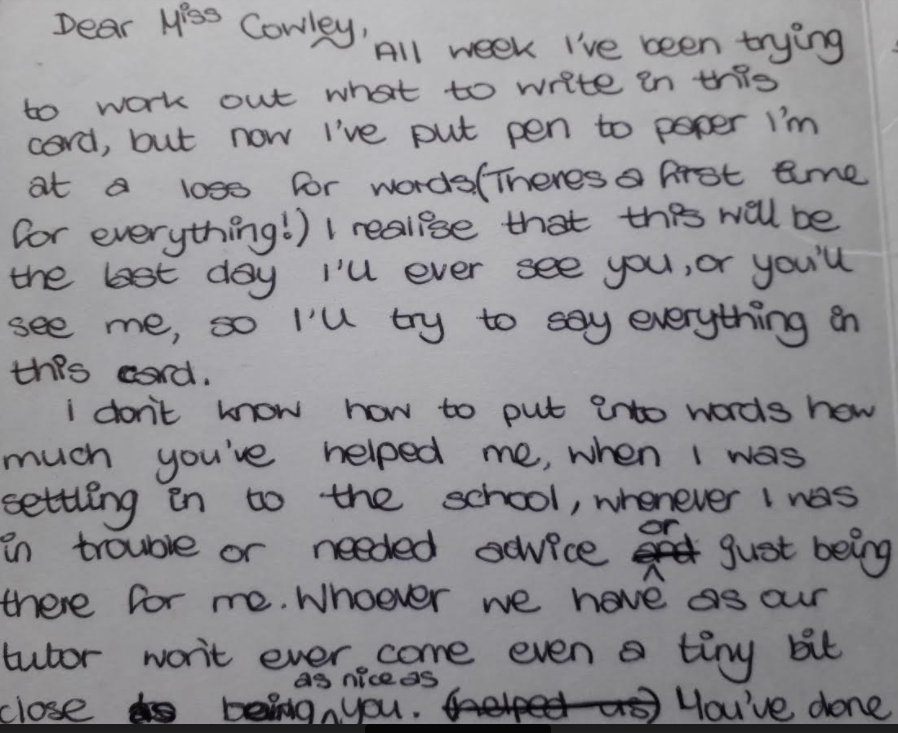 Dear Miss Cowley,
All week I've been trying
to work out what to write in this
card, but now I've put pen to paper I'm
at a loss for words(Theres a first time
for everything!) I realise that this will be
the last day I'll ever see you, or you'll
see me, so I'll try to say everything in
this card.
I don't know how to put into words how
much you've helped me, when I was
settling in to the school, whenever I was
or
in trouble or needed advice and just being
there for me. Whoever we have as our
tutor won't ever come even a tiny bit
as nice as
close as being you. (helped us) You've done